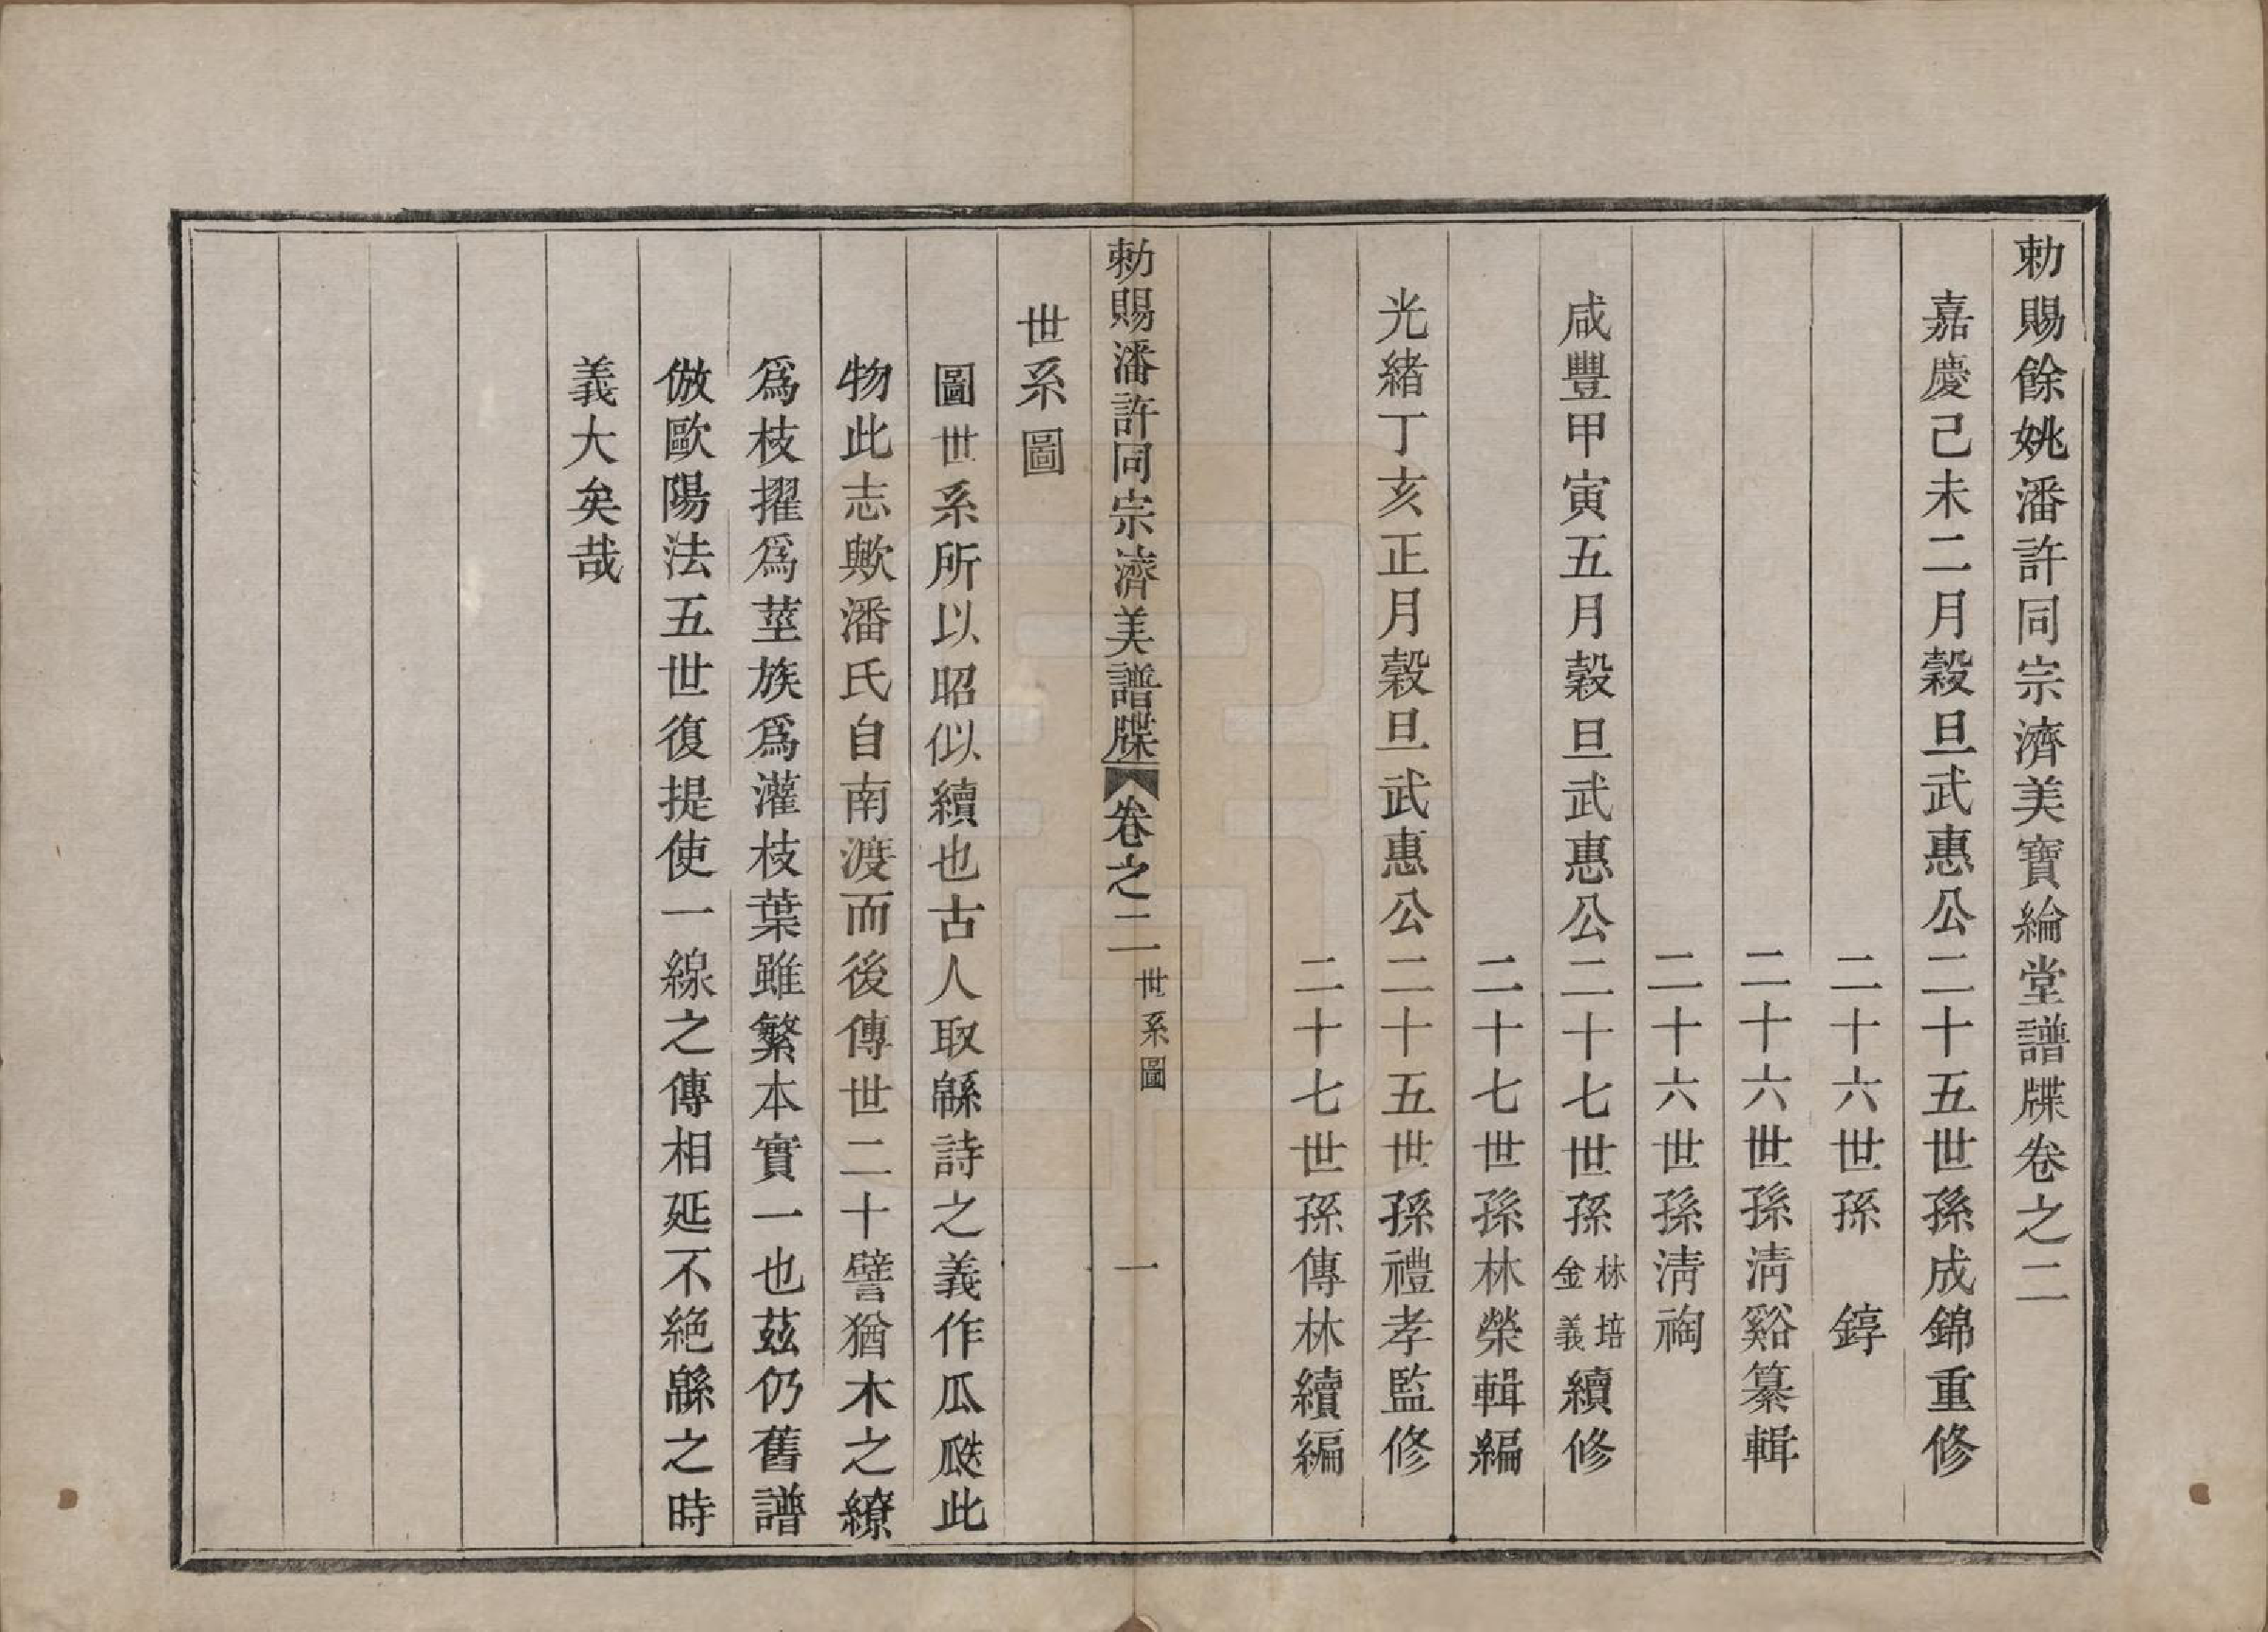 勅賜餘姚潘許同宗濟美寶綸堂譜牒卷之二
嘉慶己未二月穀旦武惠公二十五世孫成錦重修
二十六世孫 錞
二十六世孫淸谿纂輯
二十六世孫淸裪
咸豐甲寅五月穀旦武惠公二十七世孫林培金義續修
二十七世孫林榮輯編
光緒丁亥正月穀旦武惠公二十五世孫禮孝監修
二十七世孫傳林續編
勅賜潘許同宗濟美譜牒 卷之二 世系圖 一
世系圖
圖世系所以昭似續也古人取緜詩之義作瓜瓞此
物此志歟潘氏自南渡而後傳世二十譬猶木之繚
爲枝擢爲莖族爲灌枝葉雖繁本實一也茲仍舊譜
倣歐陽法五世復提使一線之傳相延不絕緜之時
義大矣哉